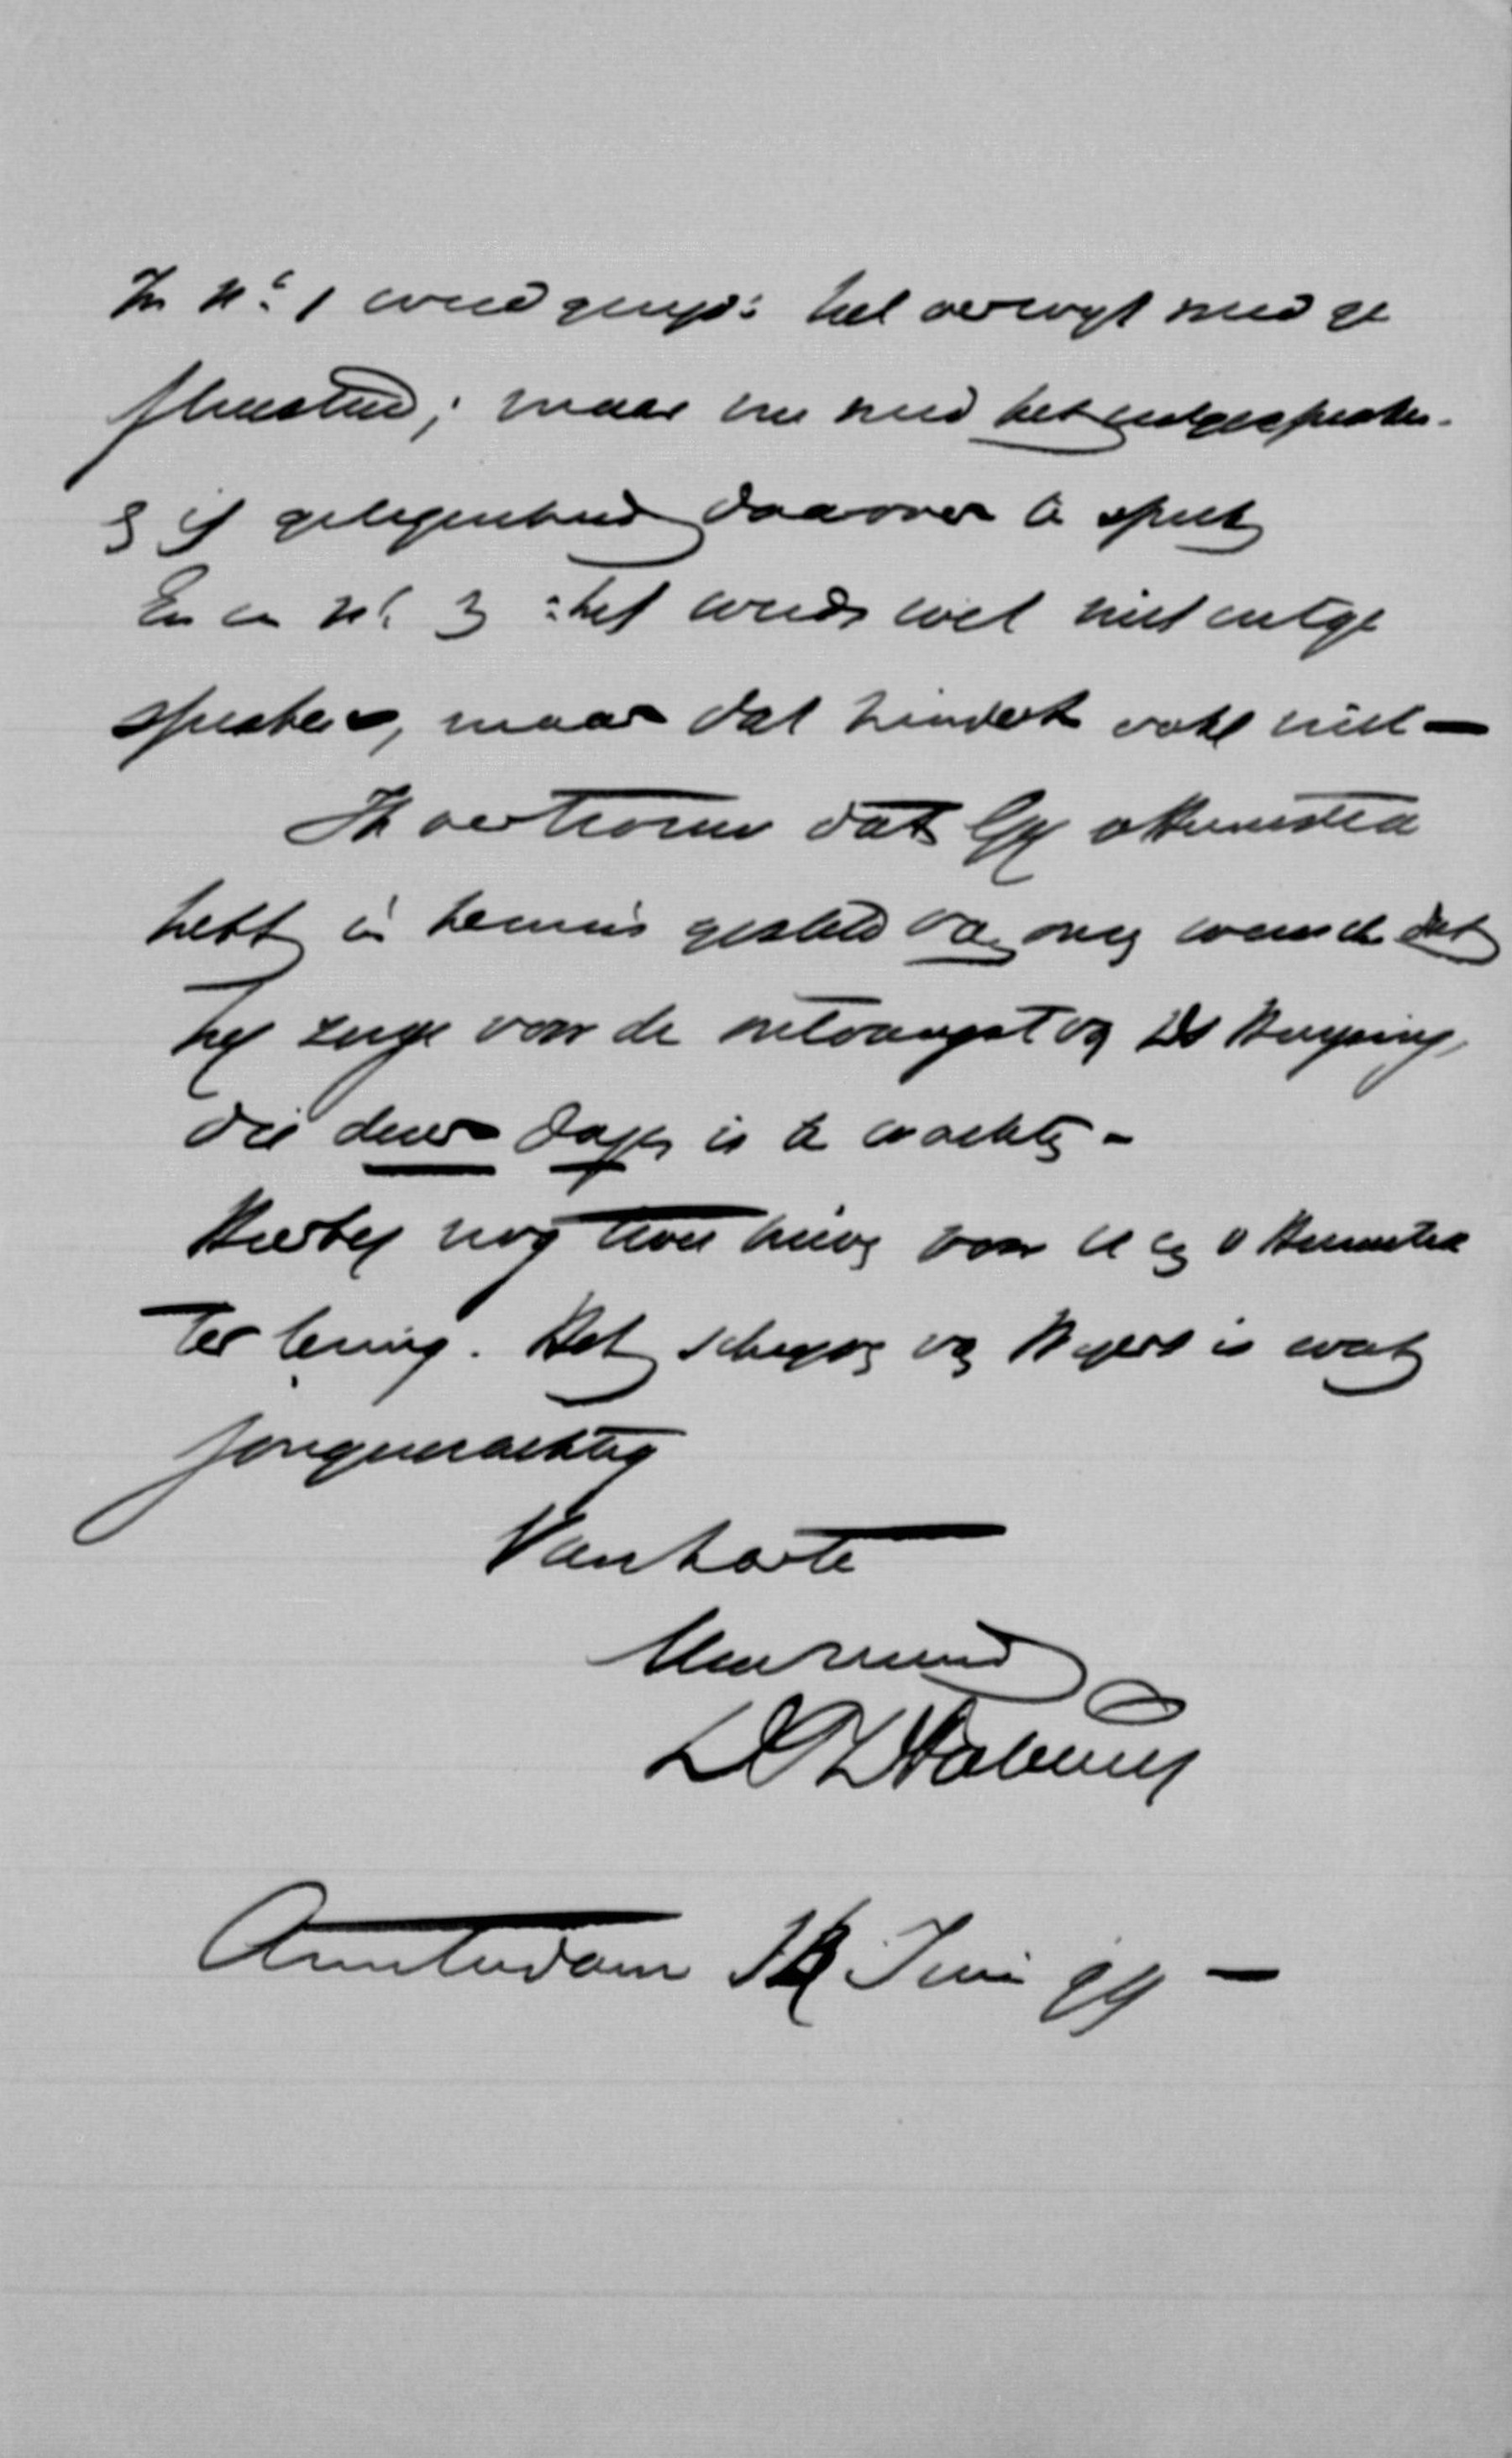 In No. 1 werd gezegd: het verwijt werd ge
fluisterd; maar nu werd het uitgesproken.
& is gelegenheid daarover te spreken
En in No. 3 : het werd wel niet uitge
sproken, maar dat hindert ook niet —
Ik vertrouw dat Gij
hebt in kennis gesteld van mijn wensch dat
hij zorge voor de ontvangst van Ds
die dezer dagen is te wachten -
Hierbij nog twee voor U en
ter lezing. Het schrijven van is wat
jongensachtig
Van harte
Uw vriend
Amsterdam Juni 99 —